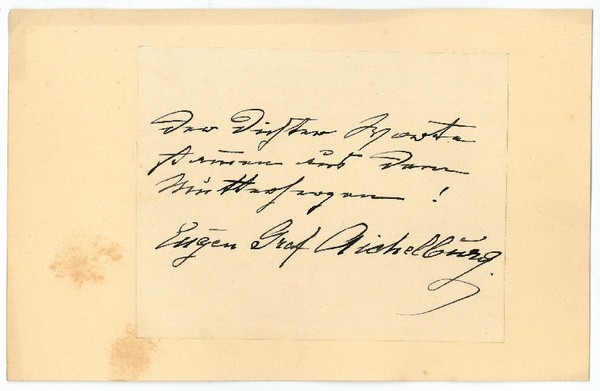 Der Dichter Worte
stammen aus dem
Mutterherzen !
Eugen Graf Aichelburg.